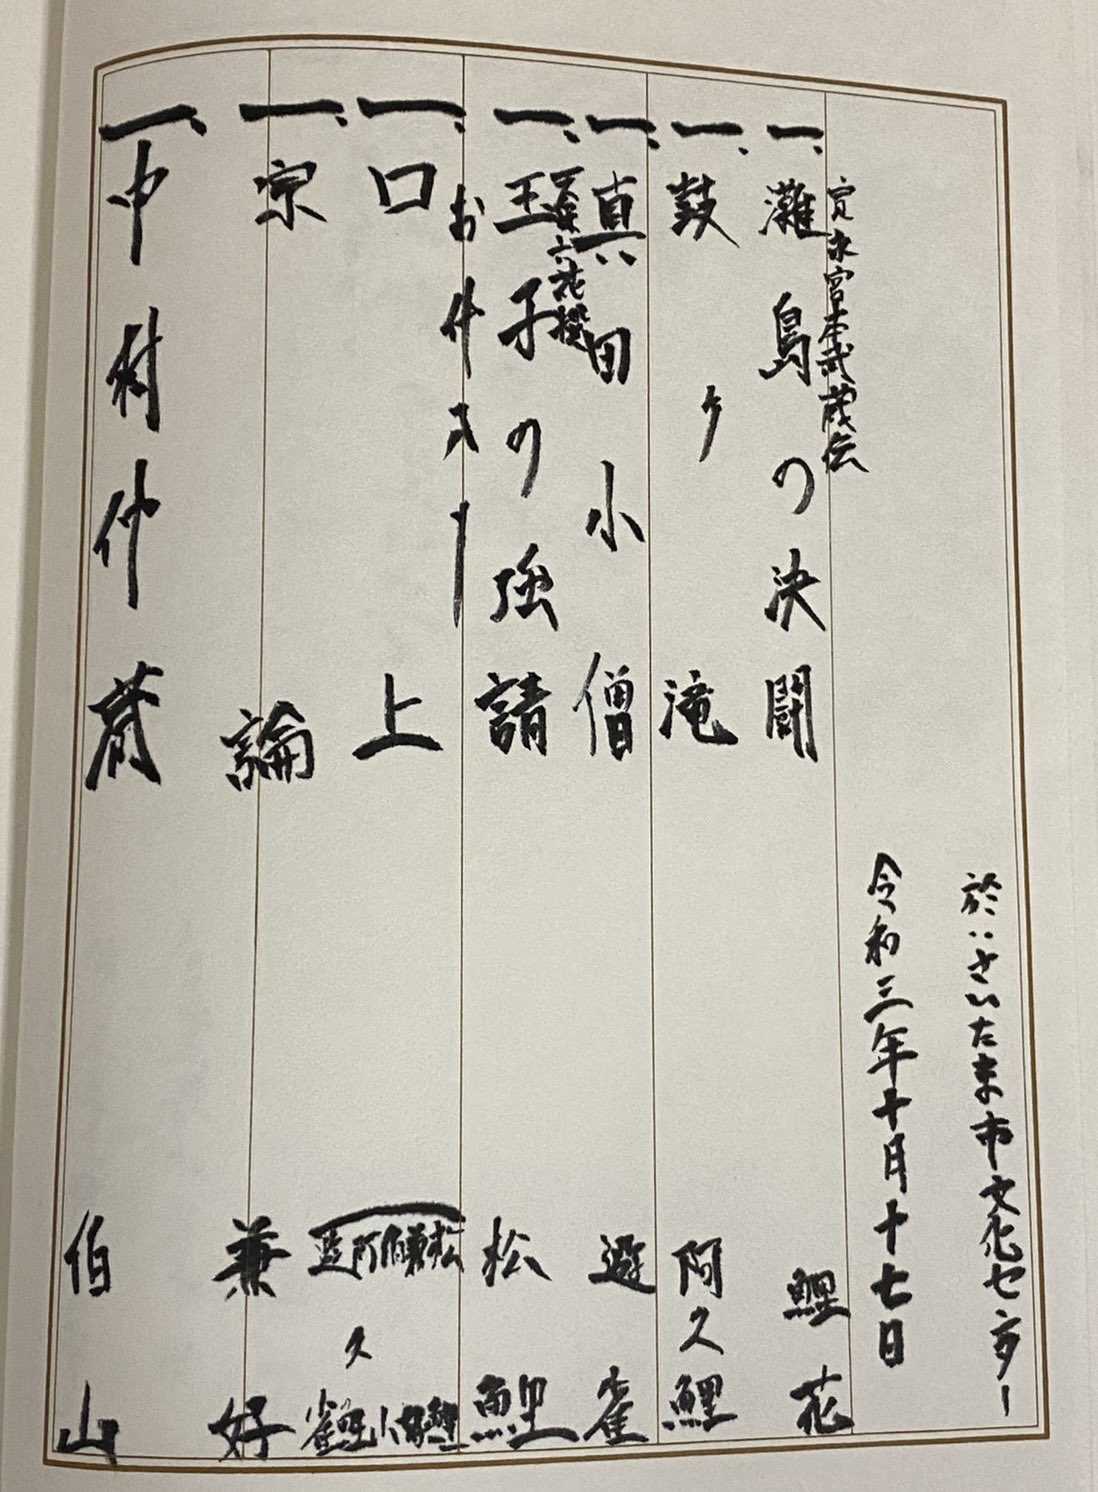 於:さいたま市文化センター
令和三年十月十七日
寛永宮本武蔵伝
一、灘島の決闘 鯉花
一、鼓ヶ滝 阿久鯉
一、真田小僧 遊雀
天保六花撰
一、玉子の強請 松鯉
お仲入り
一、口上 松鯉 兼好 伯山 阿久鯉 遊雀
一、宗論 兼好
一、中村仲蔵 伯山